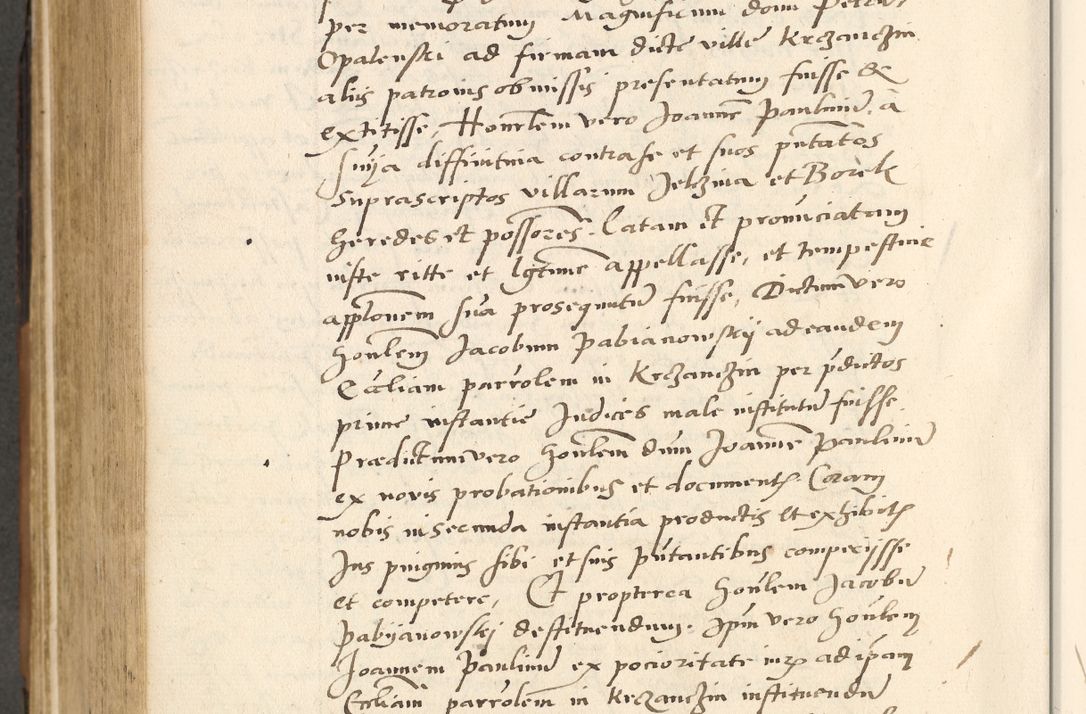 per memoratum Magnificum dom Petru
Opalenski ad firmam dicte ville Krzanczin
aliis patronis obmissis presentatum fuisse &
extitisse, Honrlem vero Joanne Paulinu, a
snya diffinitiua contra se et suos pntatos
suprascriptos villarum Jelzina et Borek
heredes et possores. Latam et pronuciatam
iuste ritte et lgtime appellasse, et tempestiue
applonem sua prosequutu fuisse, Dictum vero
honlem Jacobum Pabianowskij ad eandem
Eccliam parrolem in Krzanczin per pdictos
prime instantie Judices male institutu fuisse.
Prædictum vero honlem dnum Joanne Paulinu
ex novis probationibus et documentis Coram
nobis in secunda instantia productis et exhibitis
Jus pinguius sibi et suis pntantibus compeciisse
et competere, Et propterea honlem Jacobu
Pabyanowskj destituendum. Ipm vero honlem
Joannem Paulinu ex pocioritate iuris ad ipam
Eccliam parrolem in Krzanczin instituendu